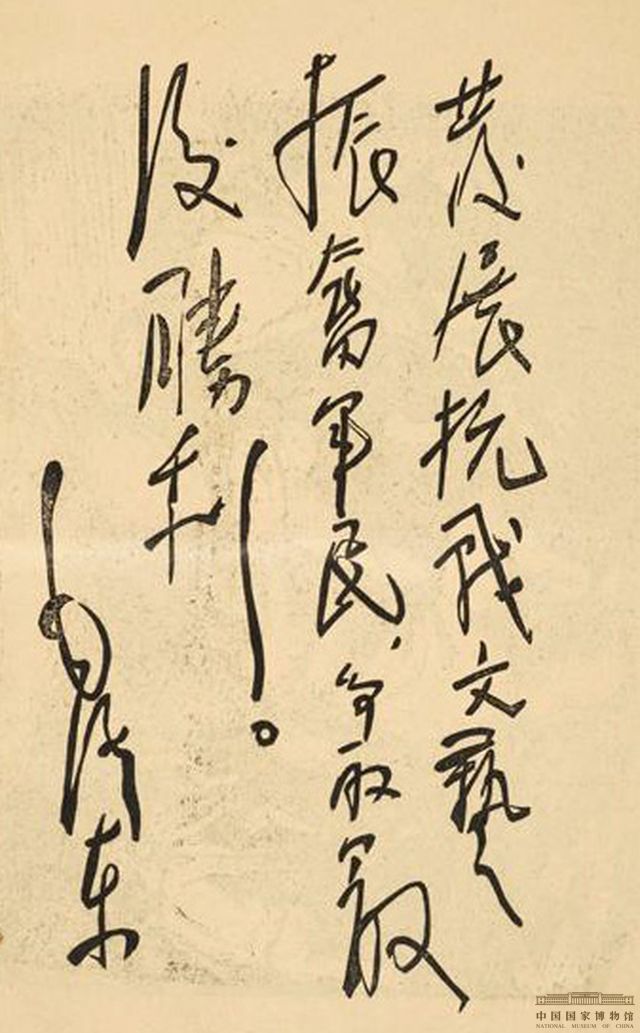 發展抗战文藝
振奮軍民，争取最
後勝利。
毛泽东
中国国家博物馆
NATIONAL MUSEUM OF CHINA